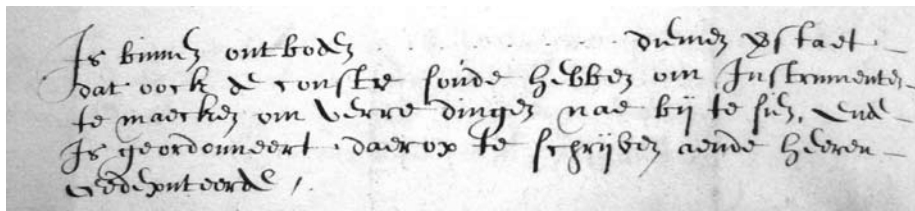 Is binnen ontboden . . . . . . . . . . diemen verstaet
dat oock de conste soude hebben om Instrumenten
te maecken om verre dingen nae bij te sien, ende
Is geordonneert daerop te schrijven aende Heeren
Gedeputeerde /.